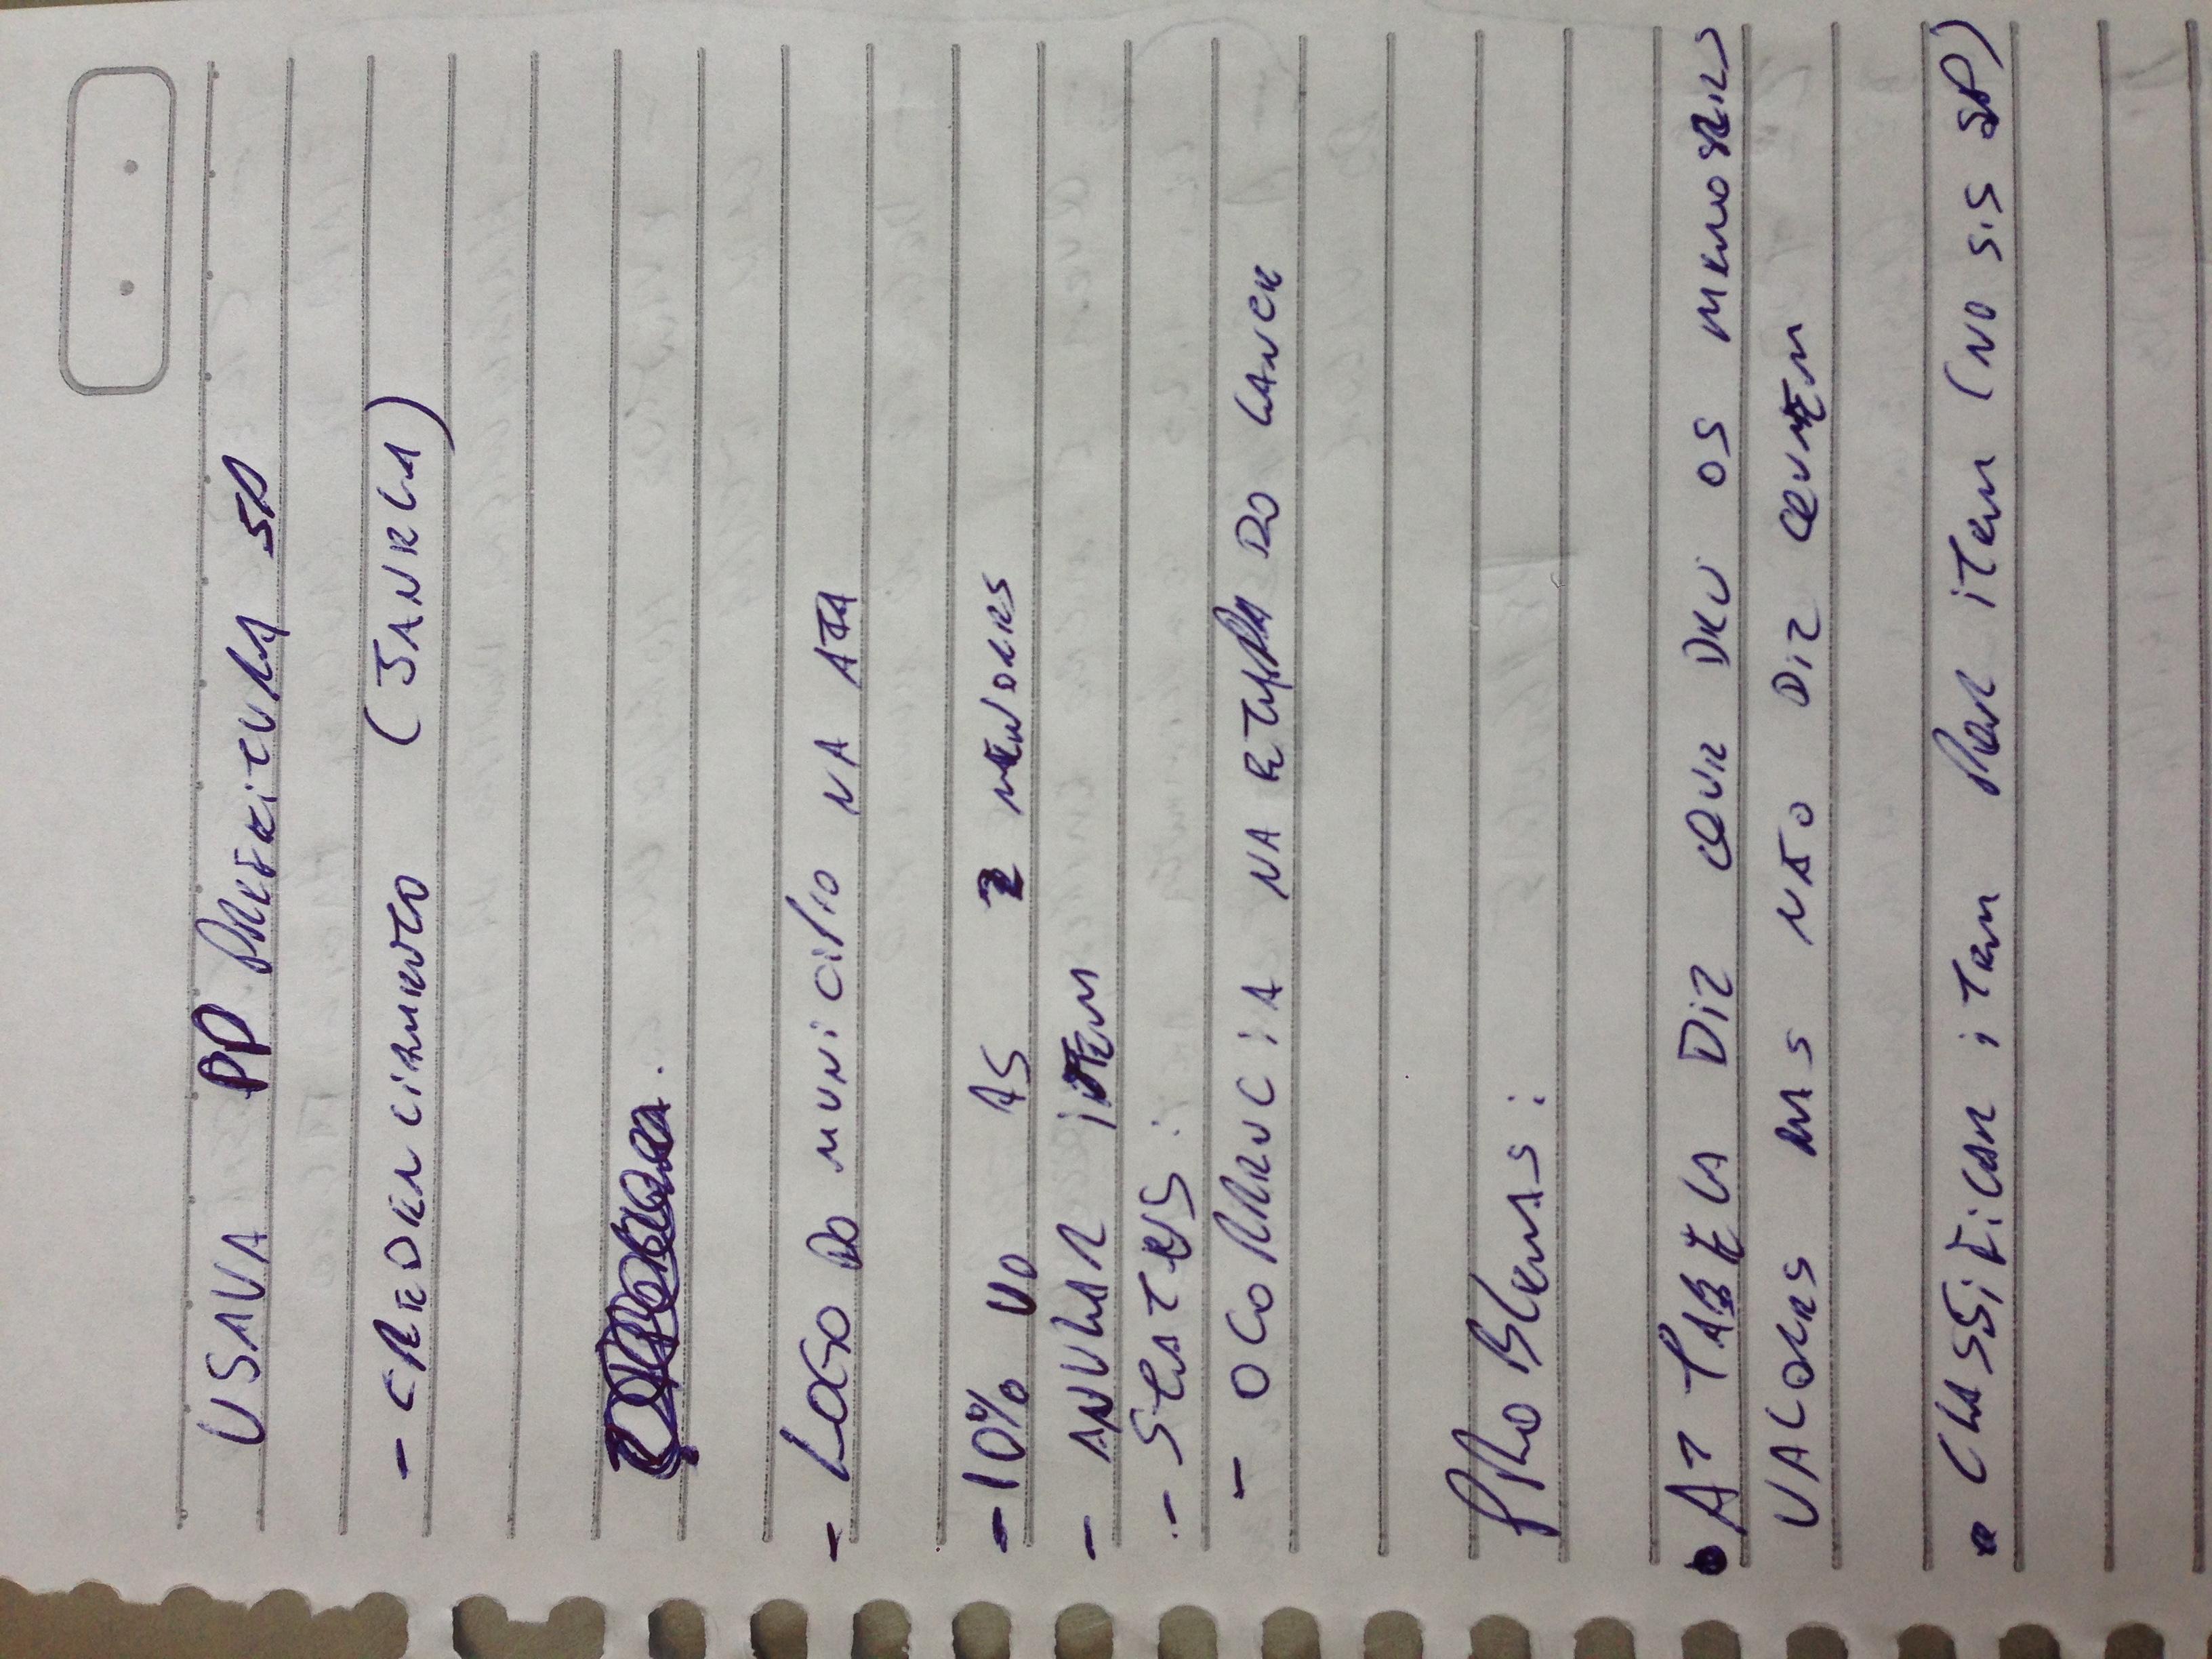 USAVA PP PREFEITURA SP
- CREDENCIAMENTO (JANELA)
- LOGO DO MUNICIPIO NA ATA
- 10% VO AS 2 MENORES
- ANULAR ITEM
- STATUS:
- OCORRENCIA NA ETAPA DO LANCE
PROBLEMAS:
• A TABELA DIZ QUE DEU OS MENORES
VALORES MAS NÃO DIZ QUEM
• CLASSIFICAR ITEM POR ITEM (NO SIS SP)